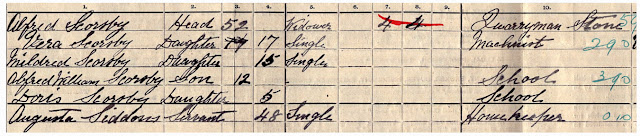 1. 2. 3. 4. 5. 6. 7. 8. 9. 10.
Alfred Scoroby Head 52 Widower 4 4 Quarryman - Stone
Vera Scoroby Daughter 17 Single Machinist 290
Mildred Scoroby Daughter 15 Single
Alfred William Scoroby Son 12 School 390
Doris Scoroby Daughter 5 School
Augusta Seddons Servant 48 Single Housekeeper 0